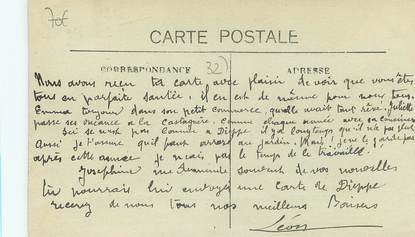 70€
CARTE POSTALE
CORRESPONDANCE 32) ADRESSE
Nous avons reçu ta carte avec plaisir de voir que vous êtes
tous en parfaite santée, il en est de même pour nous tous.
Emma toujour dans son petit commerce, qu'elle avait tant rêvé. Juliette
passe ses vacance a la comme chaque année avec ses cousines
Ici se n'est pas comme a Dieppe il y a longtemps qu'il n'a pas plut
Aussi je t'assure qu'il faut arrosé au jardin. Mais je ne le garde pas
après cette année je n'ais pas le temps de le travaillé
Joséphine me demande souvent de vos nouvelles
tu pourrais lui envoyé une carte de Dieppe
recevez de nous tous nos meilleurs Baisers
Léon